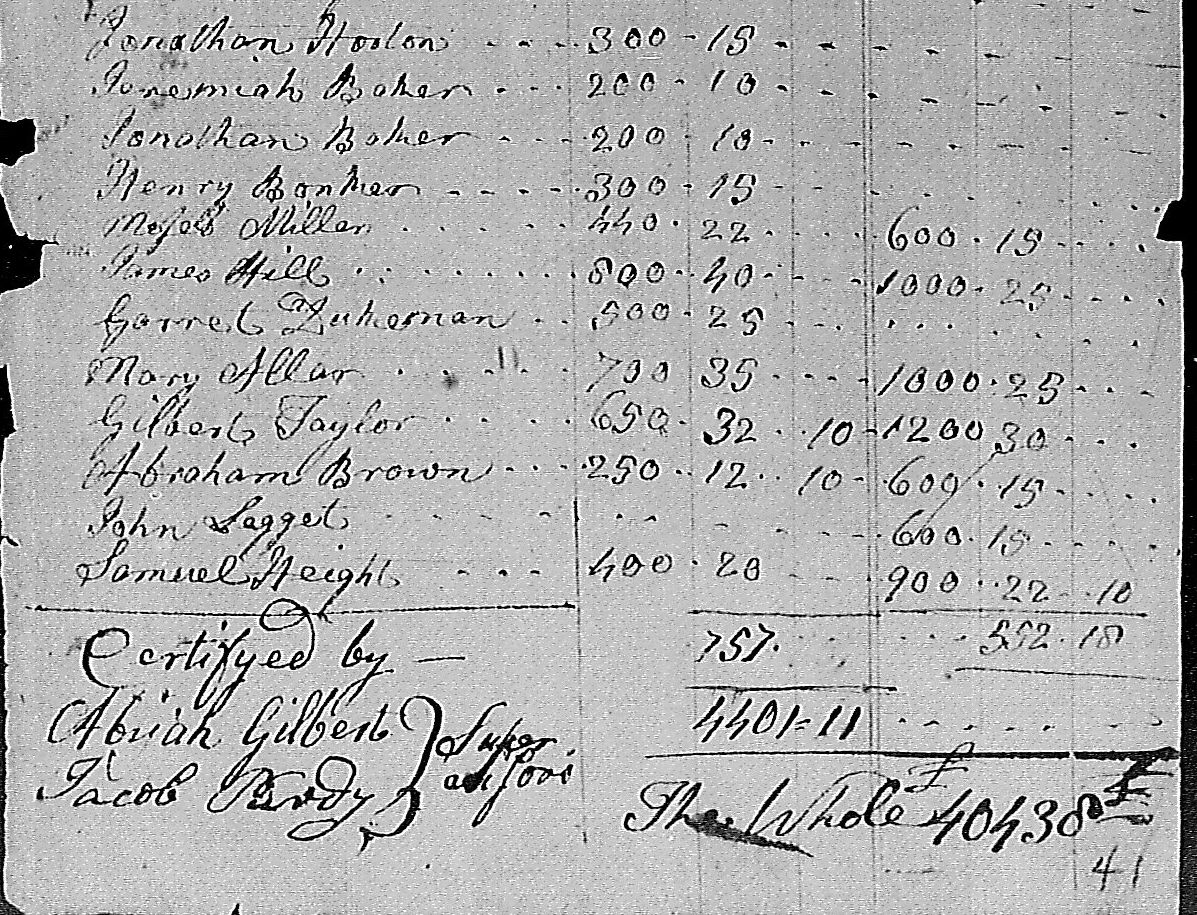 Jonathan Horton - - - 300 - 15 - - - - - -
Jeremiah Baker - - - 200 - 10 - - - - - -
Jonathan Baker - - - 200 - 10 - - - - - -
Henry Bonker - - - - 300 - 15 - - - - -
Moses Miller . . . . . 440 . 22 . . . . 600 . 15 . . . .
James Hill . . . . . . . 800 . 40 . . . 1000 . 25 . . . .
Garret Dukeman . . 500 . 25 . . . . . . . . . .
Mary Allar . . . . . 700 35 . . . . 1000 . 25 . . .
Gilbert Taylor . . . . 650 . 32 . . 10 - 1200 30 . . .
Abraham Brown - - - 250 . . 12 . . 10 - 600 . 15 . . . .
John Legget . . . . . . . . 600 . 15 . . . .
Samuel Height - - - 400 . 20 - - - 900 . . 22 . . 10
Certifyed by — 757 . . . . . . 552 . 18
Abijah Gilbert } Super 4401=11 . . . . . .
Jacob Purdy } visors The Whole £ 40438 £
41